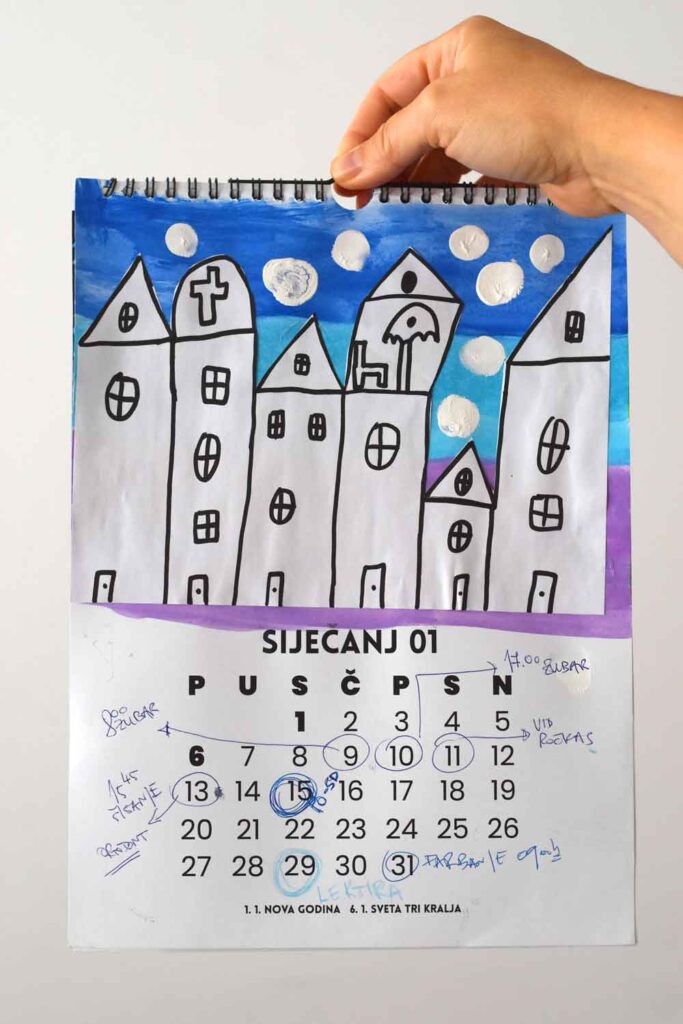 SIJEČANJ 01
P U S Č P S N
17.00 ZUBAR
8 00 ZUBAR
1 2 3 4 5
VID
ROĐKAS
6 7 8 9 10 11 12
15 45
ŠIŠANJE
13 14 15 16 17 18 19
20 21 22 23 24 25 26
27 28 29 30 31 FARBANJE 0900h
LEKTIRA
1. 1. NOVA GODINA 6. 1. SVETA TRI KRALJA